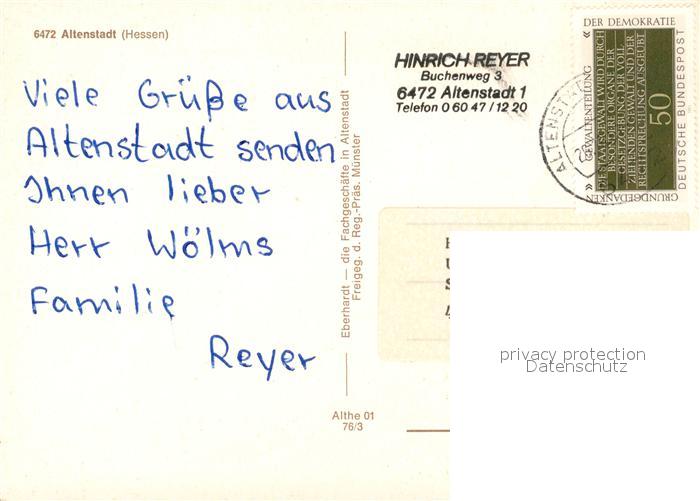 6472 Altenstadt (Hessen)
Viele Grüße aus
Altenstadt senden
Ihnen lieber
Herr Wölms
Familie
Reyer
Eberhardt — die Fachgeschäfte in Altenstadt
Freigeg. d. Reg.-Präs. Münster
Althe 01
76/3
HINRICH REYER
Buchenweg 3
6472 Altenstadt 1
Telefon 0 60 47 / 12 20
ALTENSTADT
GRUNDGEDANKEN
DER DEMOKRATIE
» GEWALTENTEILUNG «
DIE STAATSGEWALT WIRD DURCH
BESONDERE ORGANE DER
GESETZGEBUNG DER VOLL
ZIEHENDEN GEWALT UND DER
RECHTSPRECHUNG AUSGEÜBT
50
DEUTSCHE BUNDESPOST
privacy protection
Datenschutz